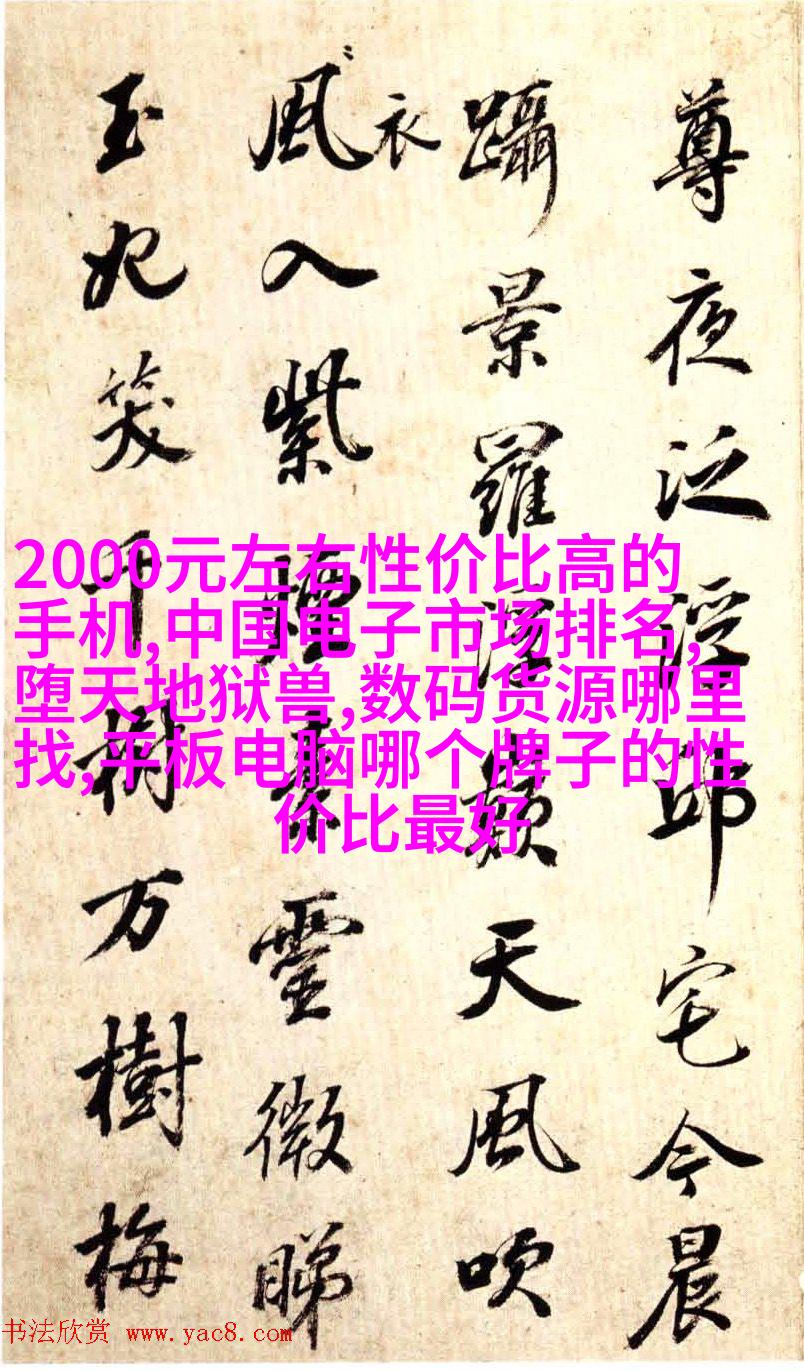 尊夜泛浮邱宅今晨
躡景羅浮顛天風吹
衣
風入紫煙素靈微睇
玉妃笑千樹万樹梅
2000元左右性价比高的
手机,中国电子市场排名,
堕天地狱兽,数码货源哪里
找,平板电脑哪个牌子的性
价比最好
书法欣赏 www.yac8.com